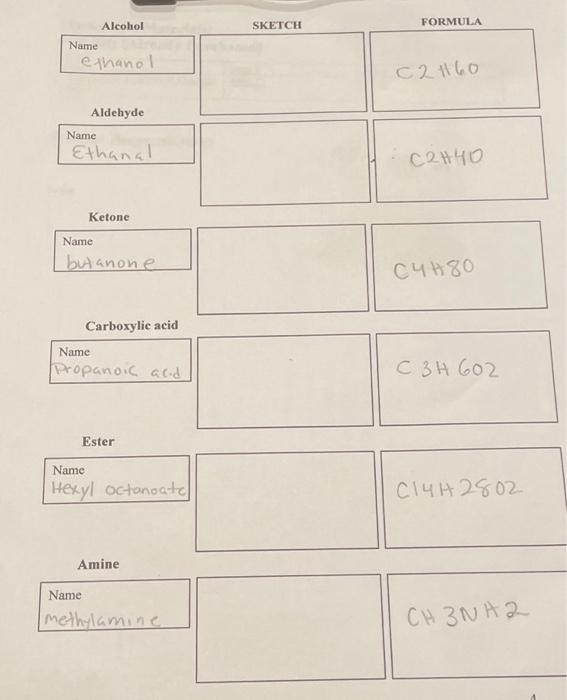 Alcohol SKETCH FORMULA
Name
ethanol
C2H6O
Aldehyde
Name
Ethanal
C2H4O
Ketone
Name
butanone
C4H8O
Carboxylic acid
Name
Propanoic acid
C3H6O2
Ester
Name
Hexyl octanoate
C14H28O2
Amine
Name
Methylamine
CH3NH2